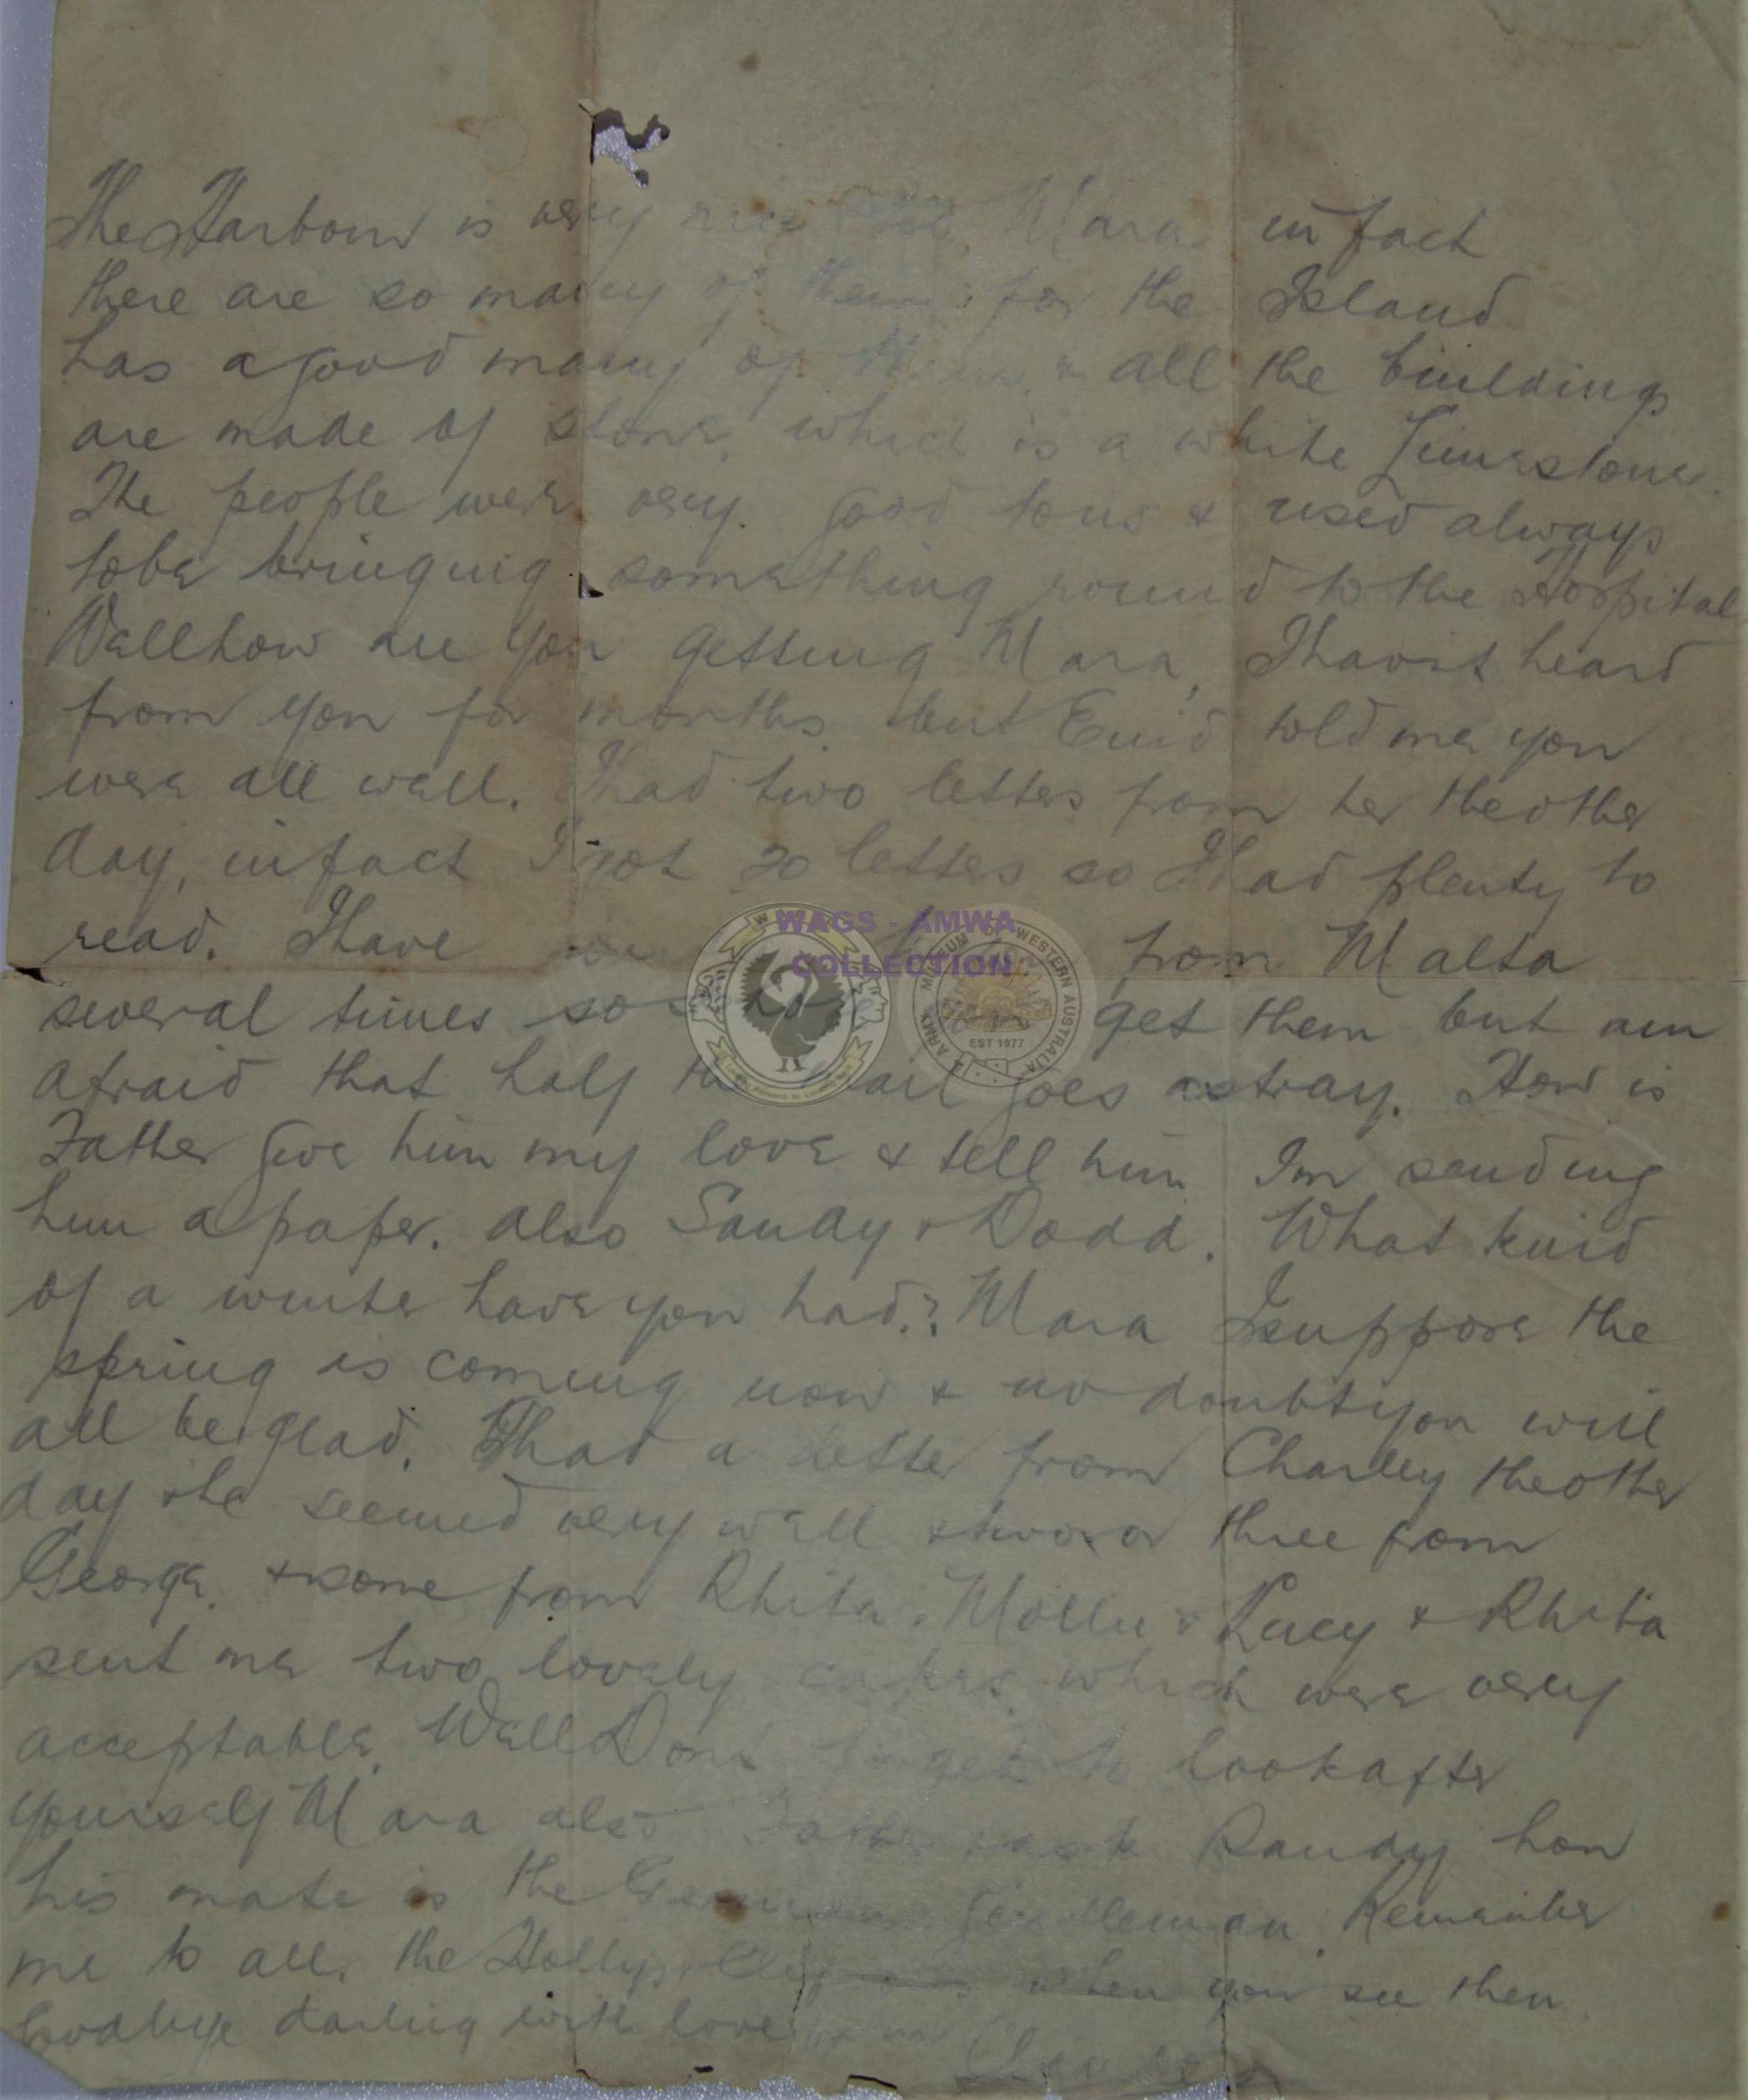 The Harbour is very nice Mara in fact
there are so many of them for the Island
has a good many of them & all the buildings
are made of stone, which is a white Limestone.
The people were very good to us & used always
to be bringing something round to the Hospital
Well how are you getting Mara, I havint heard
from you for months but Enid told me you
were all well. I had two letters from her the other
day, in fact I got 20 letters so I had plenty to
read. I have from Malta
several times so get them but am
afraid that half the mail goes astray. How is
Father give him my love & tell him Im sending
him a paper. also Sanday & Dodd. What kind
of a winter have you had?. Mara I suppose the
spring is coming now & no doubt you will
all be glad. I had a letter from Charley the other
day & he seemed very well & two or three from
George. & some from Rhita. Mollie & Lucy & Rhita
sent me two lovely cakes which were very
acceptable. Well Dont forget to look after
yourself Mara also Father & ask Sandy how
his mate is the German Gentleman. Remember
me to all. the Hollys when you see them.
Goodbye darling with love from
WAGS - AMWA
COLLECTION
ARMY MUSEUM OF WESTERN AUSTRALIA
EST 1977